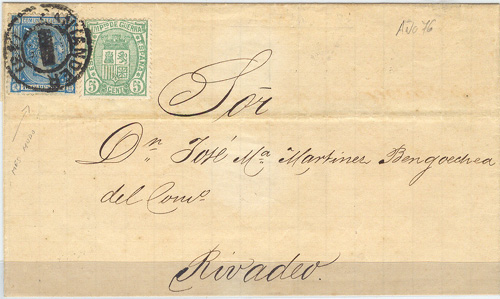 Año 76
SANTANDER
COMUNICACIONES
IMPTO DE GUERRA
ESPAÑA
5 CENT 5
Sōr
Dn. José Ma. Martinez Bengoechea
del Como.
Rivadeo.